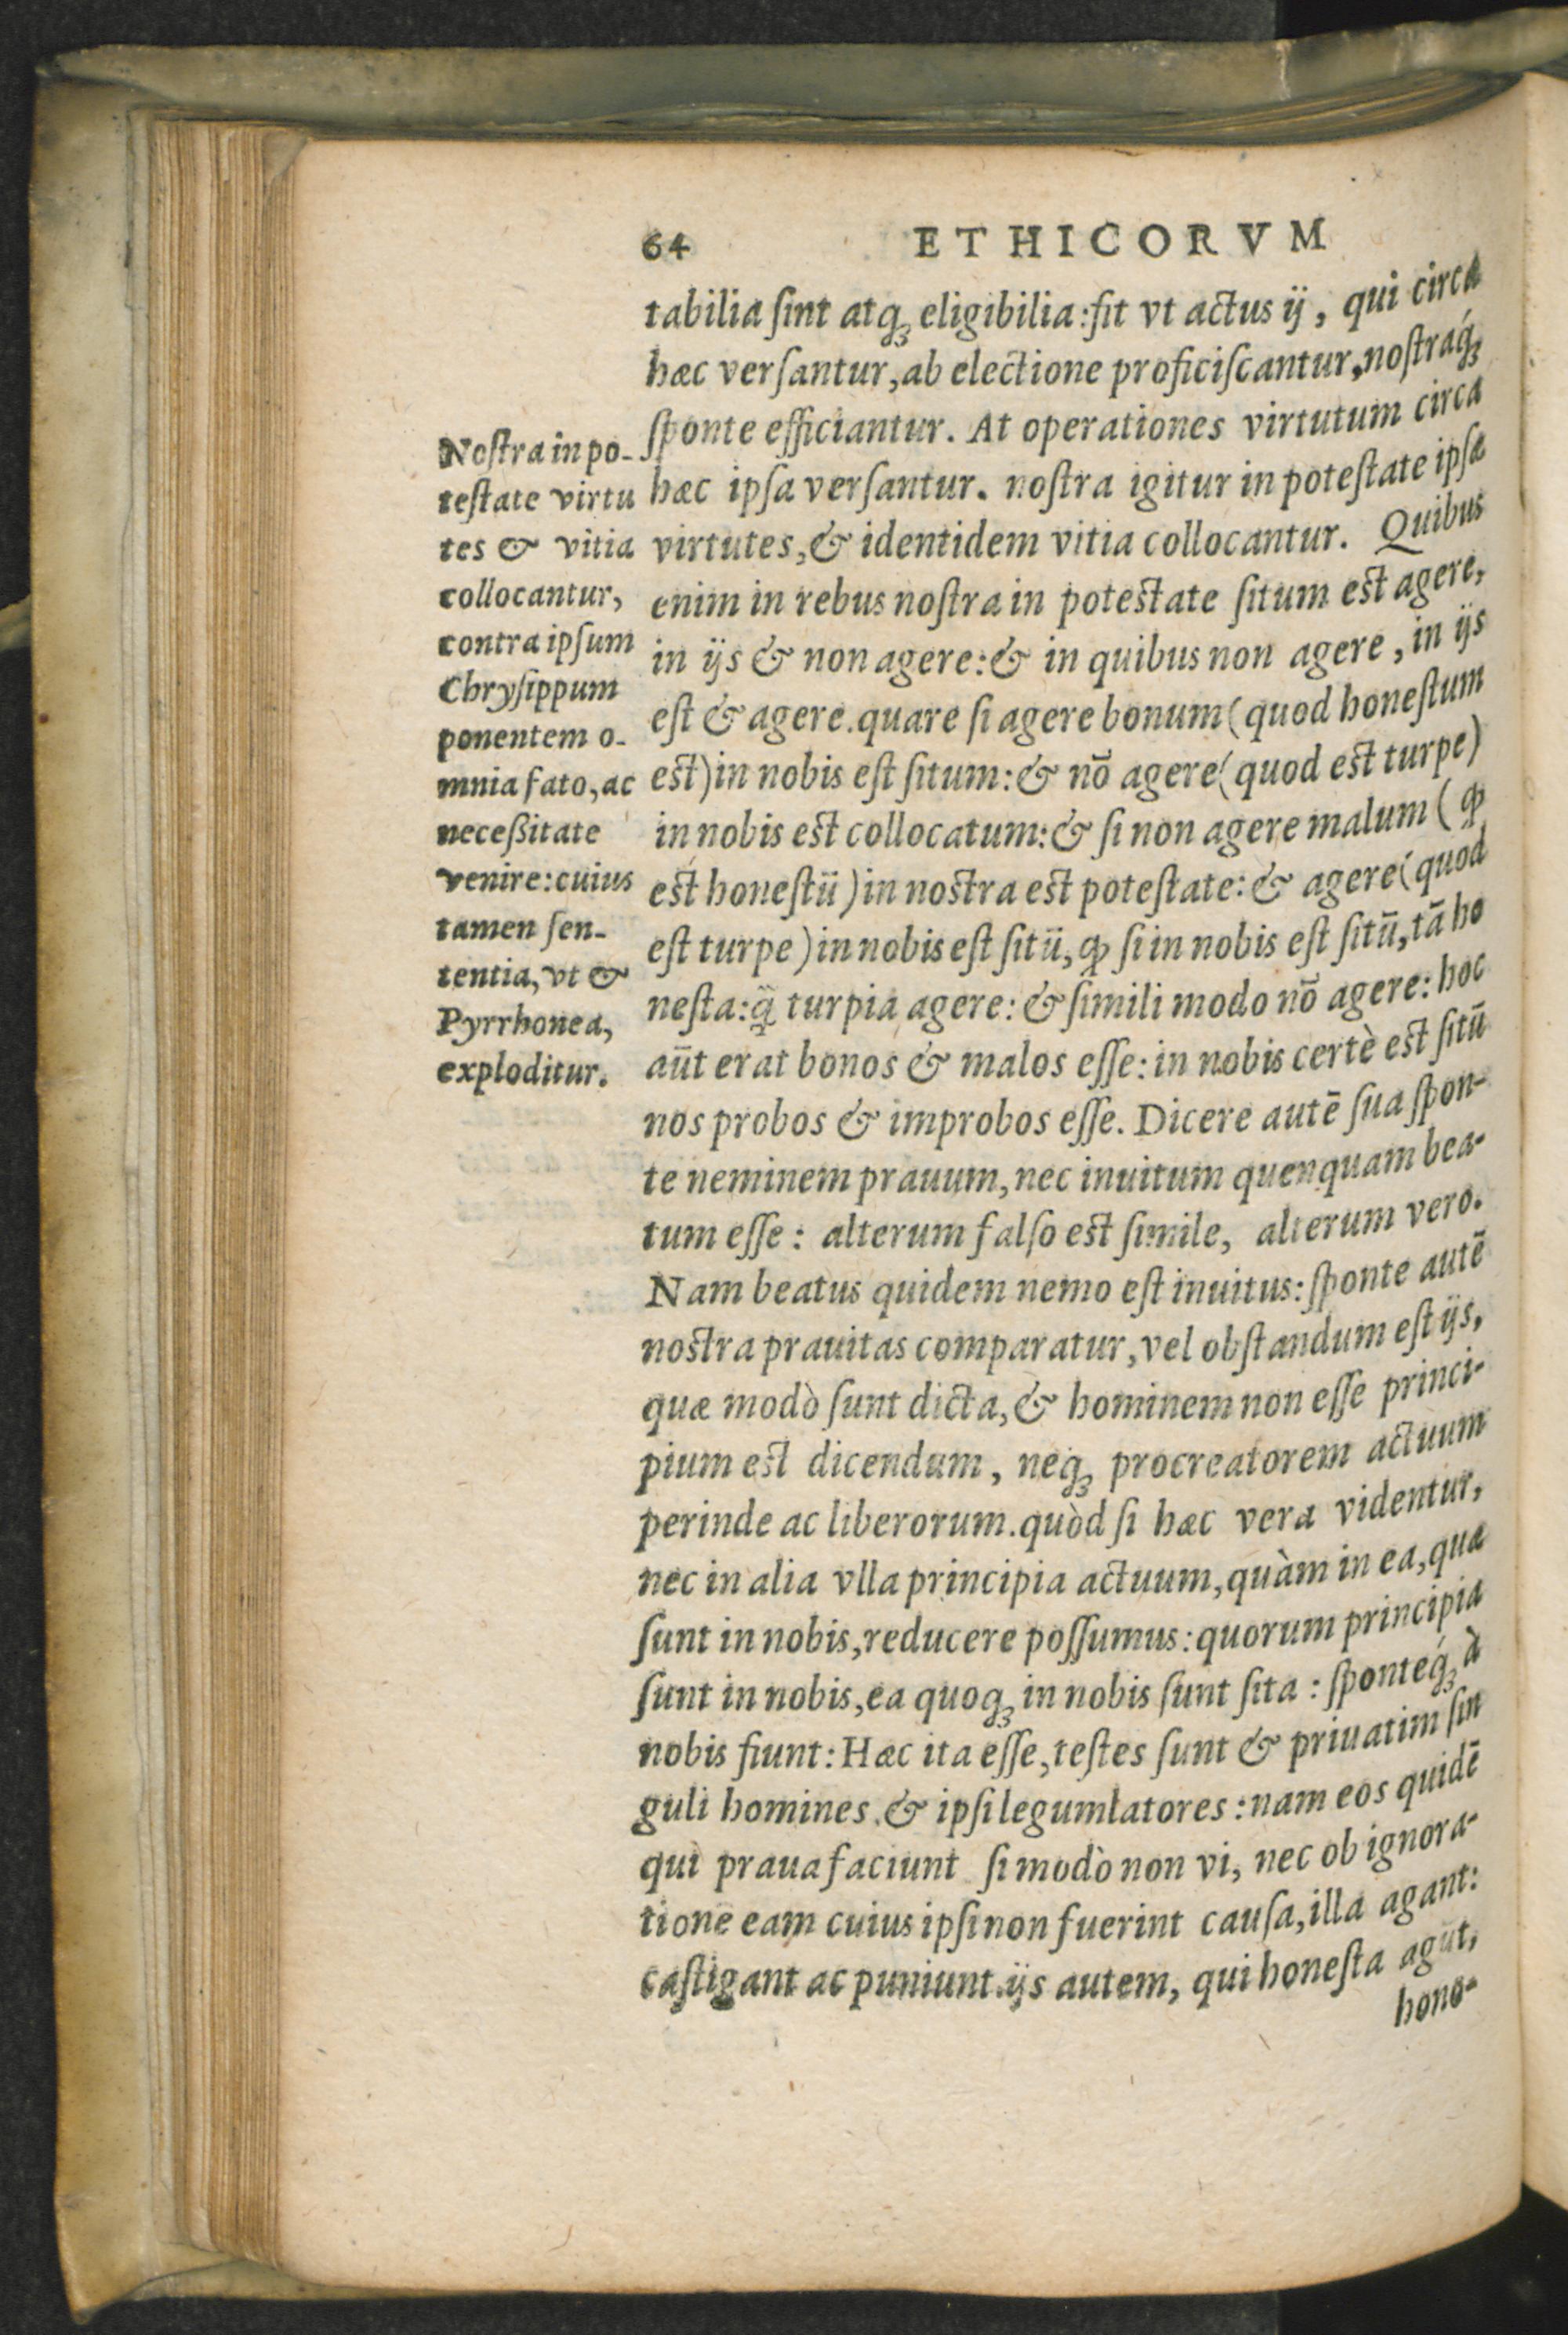 64 ETHICORVM
tabilia ſint atq́ꝫ eligibilia: fit vt actus ij, qui circa
hæc verſantur, ab electione proficiſcantur, noſtraq́ꝫ
ſponte efficiantur. At operationes virtutum circa
hæc ipſa verſantur. noſtra igitur in poteſtate ipſæ
virtutes, & identidem vitia collocantur. Quibus
enim in rebus noſtra in poteſtate ſitum eſt agere,
in ijs & non agere: & in quibus non agere, in ijs
eſt & agere. quare ſi agere bonum (quod honeſtum
eſt) in nobis eſt ſitum: & nō agere (quod eſt turpe)
in nobis eſt collocatum: & ſi non agere malum (ꝙ
eſt honeſtū) in noſtra eſt poteſtate: & agere (quod
eſt turpe) in nobis eſt ſitū, ꝙ ſi in nobis eſt ſitū, tā ho
neſta: q̃ turpia agere: & ſimili modo nō agere: hoc
aūt erat bonos & malos eſſe: in nobis certè eſt ſitū
nos probos & improbos eſſe. Dicere autē ſua ſpon-
te neminem prauum, nec inuitum quenquam bea-
tum eſſe: alterum falſo eſt ſimile, alterum vero.
Nam beatus quidem nemo eſt inuitus: ſponte autē
noſtra prauitas comparatur, vel obſtandum eſt ijs,
quæ modò ſunt dicta, & hominem non eſſe princi-
pium eſt dicendum, neqꝫ procreatorem actuum
perinde ac liberorum. quòd ſi hæc vera videntur,
nec in alia vlla principia actuum, quàm in ea, quæ
ſunt in nobis, reducere poſſumus: quorum principia
ſunt in nobis, ea quoqꝫ in nobis ſunt ſita: ſponteq́ꝫ à
nobis fiunt: Hæc ita eſſe, teſtes ſunt & priuatim ſin
guli homines & ipſi legumlatores: nam eos quidē
qui praua faciunt ſi modò non vi, nec ob ignora-
tione eam cuius ipſi non fuerint cauſa, illa agant:
caſtigant ac puniunt. ijs autem, qui honeſta agūt,
hono-
Noſtra in po-
teſtate virtu
tes & vitia
collocantur,
contra ipſum
Chryſippum
ponentem o-
mnia fato, ac
neceßitate
venire: cuius
tamen ſen-
tentia, vt &
Pyrrhonea,
exploditur.